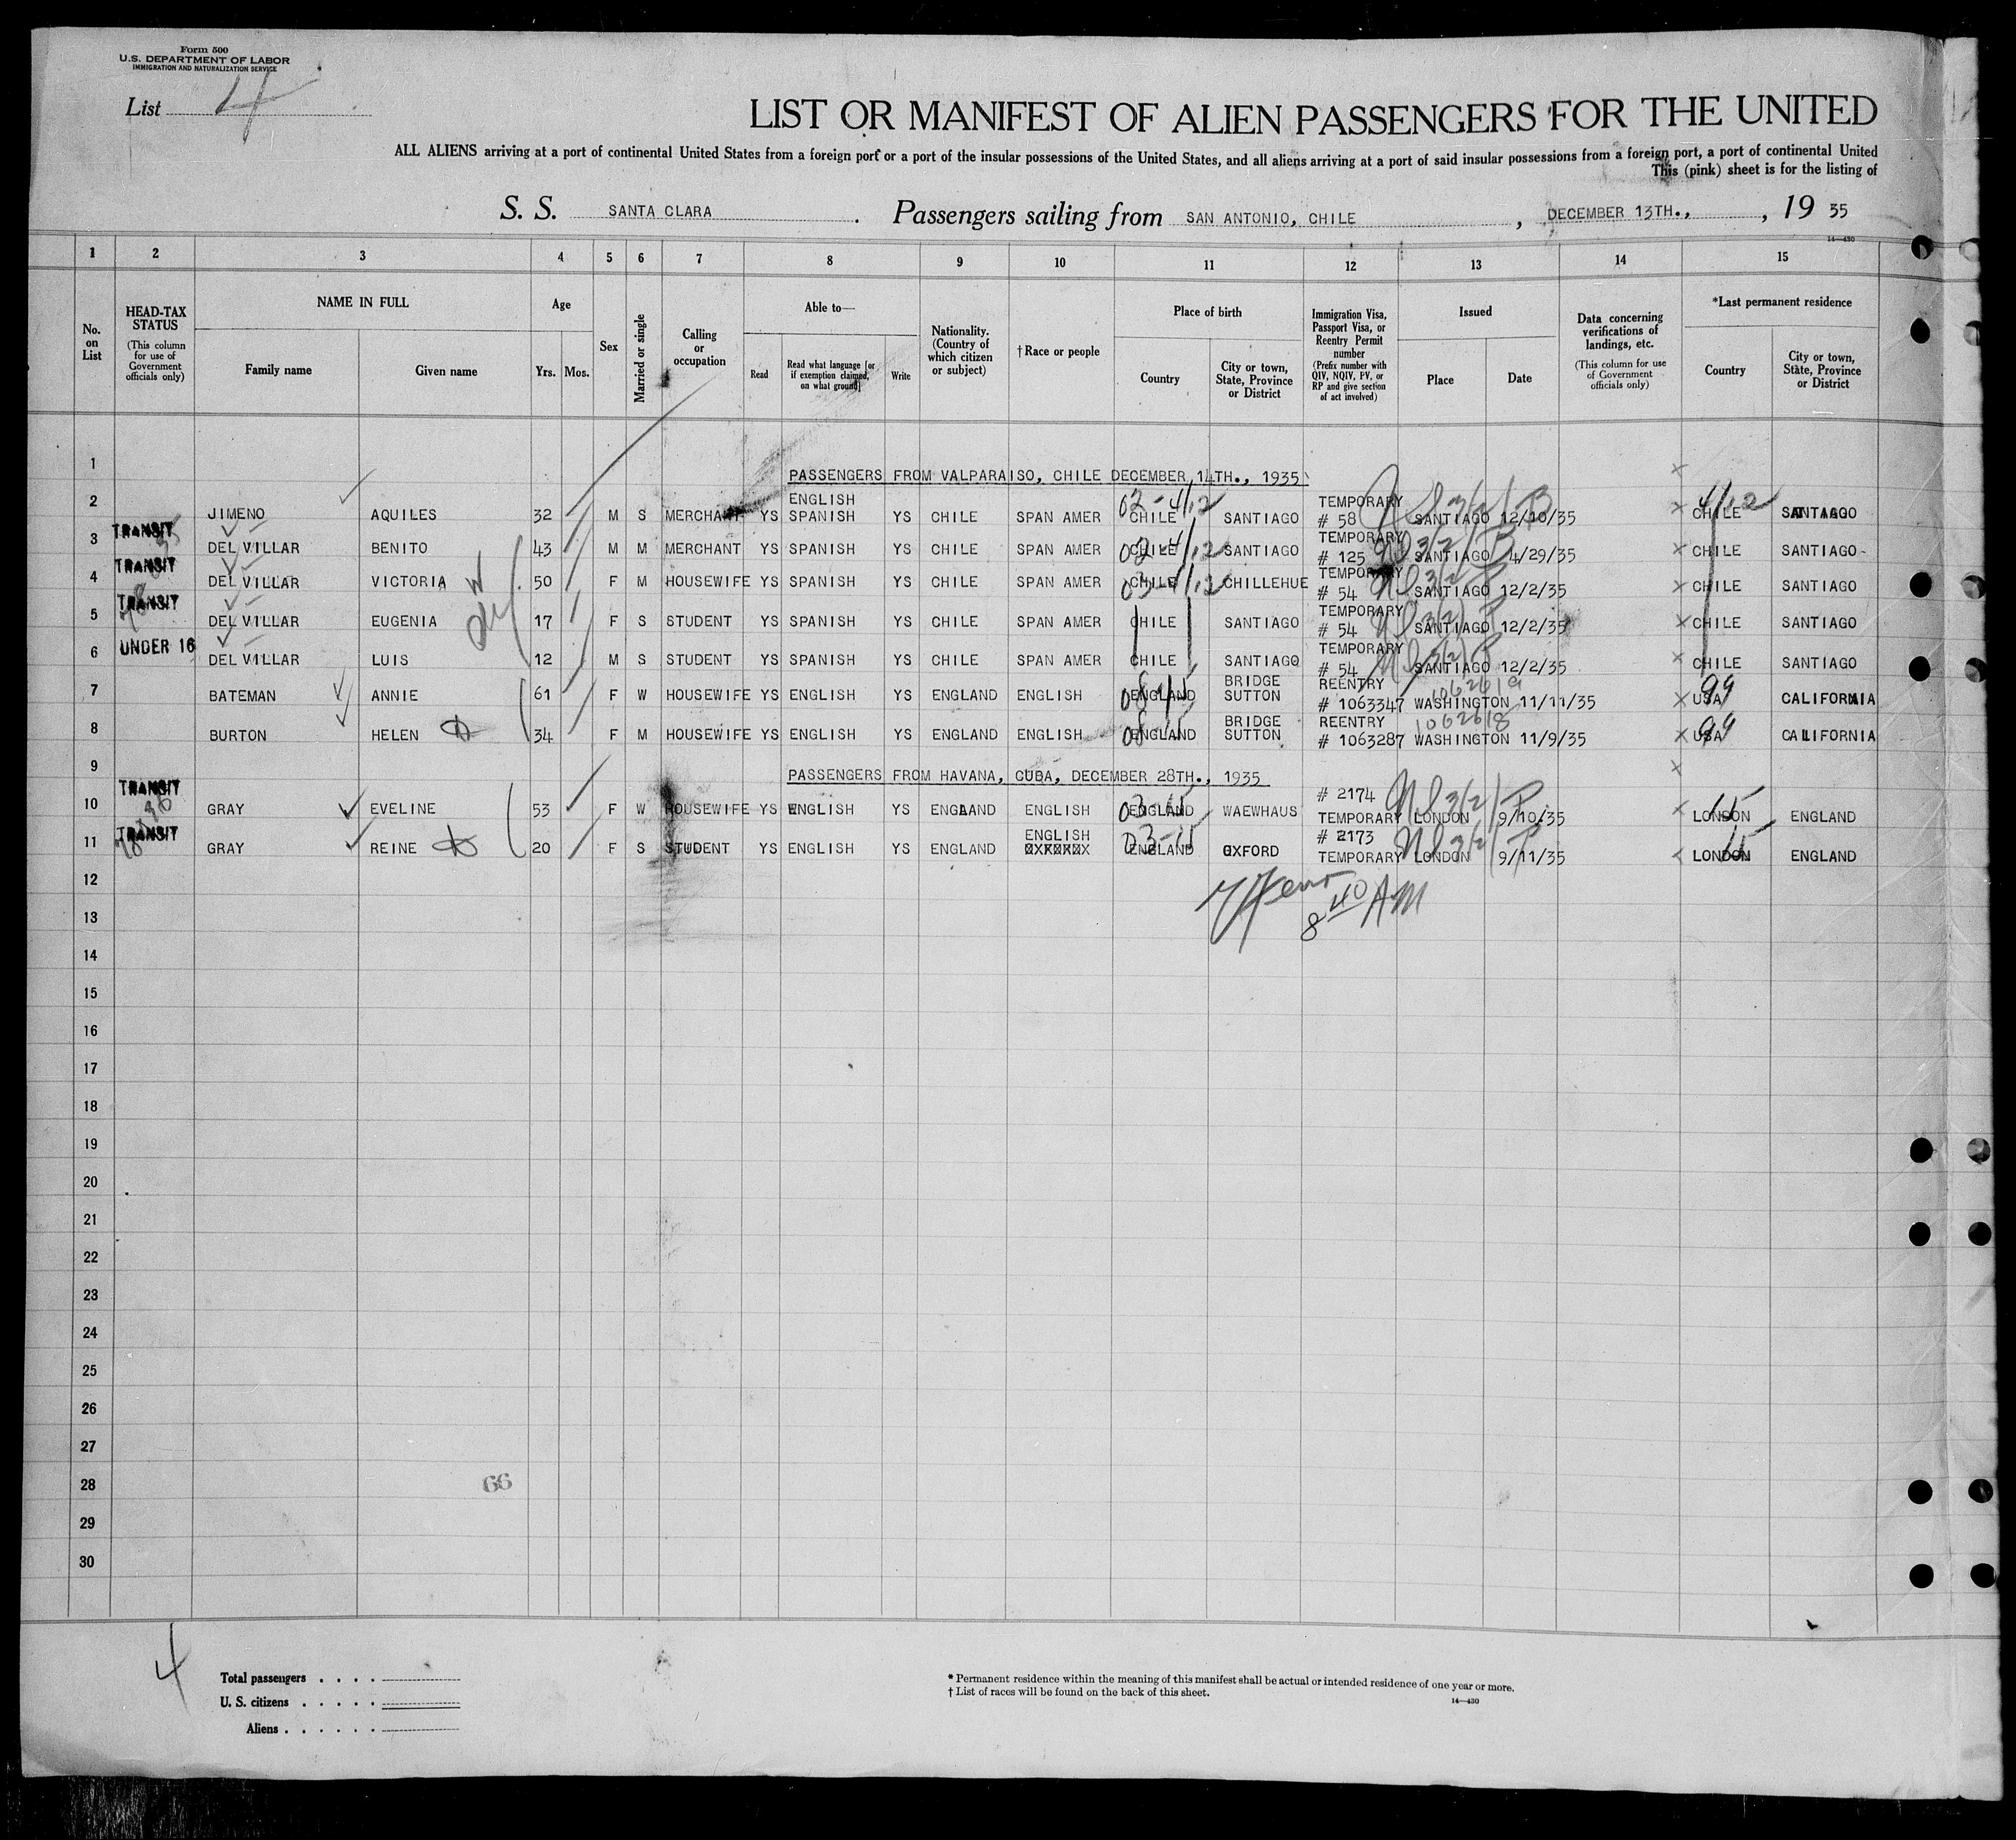 Form 500
U.S. DEPARTMENT OF LABOR
IMMIGRATION AND NATURALIZATION SERVICE
List 4
LIST OR MANIFEST OF ALIEN PASSENGERS FOR THE UNITED
ALL ALIENS arriving at a port of continental United States from a foreign port or a port of the insular possessions of the United States, and all aliens arriving at a port of said insular possessions from a foreign port, a port of continental United
This (pink) sheet is for the listing of
S. S. SANTA CLARA. Passengers sailing from SAN ANTONIO, CHILE, DECEMBER 13TH., , 19 35
14—430
1 2 3 4 5 6 7 8 9 10 11 12 13 14 15
No. on List
HEAD-TAX STATUS (This column for use of Government officials only)
NAME IN FULL
Family name
Given name
Age
Yrs. Mos.
Sex
Married or single
Calling or occupation
Able to—
Read
Read what language [or if exemption claimed, on what ground]
Write
Nationality. (Country of which citizen or subject)
†Race or people
Place of birth
Country
City or town, State, Province or District
Immigration Visa, Passport Visa, or Reentry Permit number (Prefix number with QIV, NQIV, PV, or RP and give section of act involved)
Issued
Place
Date
Data concerning verifications of landings, etc. (This column for use of Government officials only)
*Last permanent residence
Country
City or town, State, Province or District
1 PASSENGERS FROM VALPARAISO, CHILE DECEMBER 14TH., 1935
2 JIMENO AQUILES 32 M S MERCHANT YS ENGLISH SPANISH YS CHILE SPAN AMER CHILE 02-4/12 SANTIAGO TEMPORARY # 58 SANTIAGO 12/10/35 CHILE 4/12 SANTIAGO
3 TRANSIT DEL VILLAR BENITO 43 M M MERCHANT YS SPANISH YS CHILE SPAN AMER CHILE SANTIAGO TEMPORARY # 125 SANTIAGO 4/29/35 CHILE SANTIAGO
4 TRANSIT DEL VILLAR VICTORIA 50 F M HOUSEWIFE YS SPANISH YS CHILE SPAN AMER CHILE CHILLEHUE TEMPORARY # 54 SANTIAGO 12/2/35 CHILE SANTIAGO
5 TRANSIT DEL VILLAR EUGENIA 17 F S STUDENT YS SPANISH YS CHILE SPAN AMER CHILE SANTIAGO TEMPORARY # 54 SANTIAGO 12/2/35 CHILE SANTIAGO
6 UNDER 16 DEL VILLAR LUIS 12 M S STUDENT YS SPANISH YS CHILE SPAN AMER CHILE SANTIAGO TEMPORARY # 54 SANTIAGO 12/2/35 CHILE SANTIAGO
7 BATEMAN ANNIE 61 F W HOUSEWIFE YS ENGLISH YS ENGLAND ENGLISH ENGLAND BRIDGE SUTTON REENTRY # 1063347 1062619 WASHINGTON 11/11/35 USA 99 CALIFORNIA
8 BURTON HELEN 34 F M HOUSEWIFE YS ENGLISH YS ENGLAND ENGLISH ENGLAND BRIDGE SUTTON REENTRY # 1063287 1062618 WASHINGTON 11/9/35 USA 99 CALIFORNIA
9 PASSENGERS FROM HAVANA, CUBA, DECEMBER 28TH., 1935
10 TRANSIT GRAY EVELINE 53 F W HOUSEWIFE YS ENGLISH YS ENGLAND ENGLISH ENGLAND 03-15 WAEWHAUS # 2174 TEMPORARY LONDON 9/10/35 LONDON ENGLAND
11 TRANSIT GRAY REINE 20 F S STUDENT YS ENGLISH YS ENGLAND ENGLISH ENGLAND 03-15 OXFORD # 2173 TEMPORARY LONDON 9/11/35 LONDON ENGLAND
12
8 40 AM
13
14
15
16
17
18
19
20
21
22
23
24
25
26
27
28 66
29
30
4
Total passengers . . . .
U. S. citizens . . . . .
Aliens . . . . . .
* Permanent residence within the meaning of this manifest shall be actual or intended residence of one year or more.
† List of races will be found on the back of this sheet.
14—430